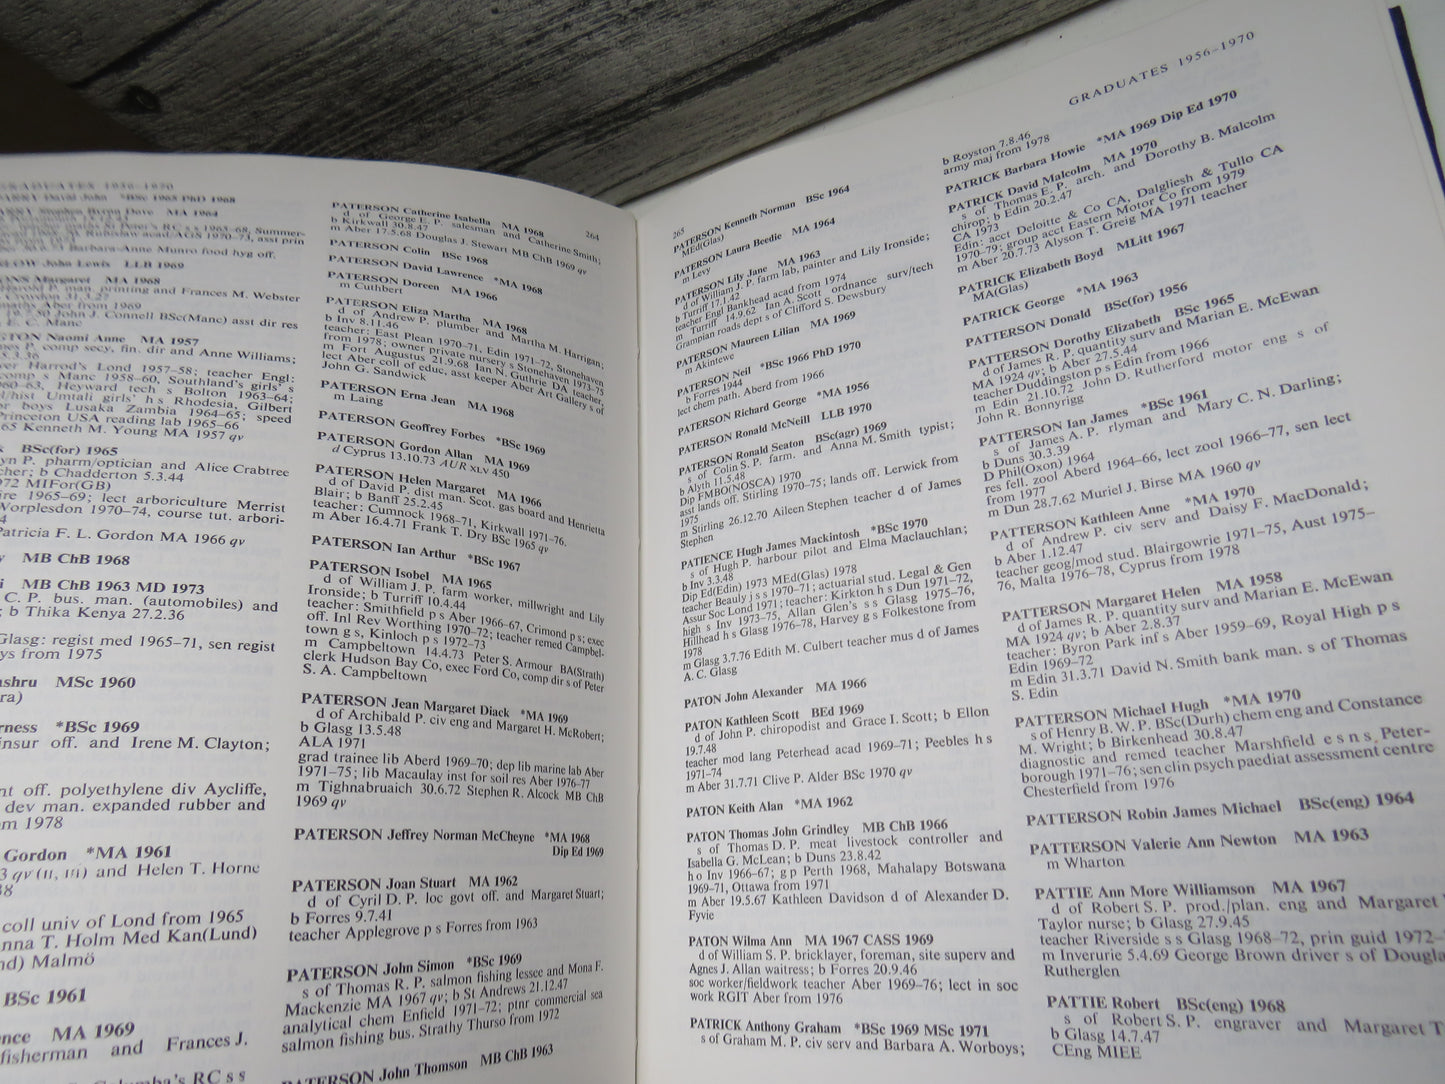 GRADUATES 1956-1970
David John *BSc 1965 PhD 1968
MA 1964
asst prin
Barbara-Anne Munro food hyg off.
John Lewis LLB 1969
Margaret MA 1968
man, printing and Frances M. Webster
Aber from 1969
John J. Connell BSc(Manc) asst dir res
E. C. Manc
Naomi Anne MA 1957
comp secy, fin. dir and Anne Williams;
Harrod's Lond 1957-58; teacher Engl:
Manc 1958-60, Southland's girls' s
Heyward tech s Bolton 1963-64;
Umtali girls' h s Rhodesia, Gilbert
boys Lusaka Zambia 1964-65; speed
Princeton USA reading lab 1965-66
65 Kenneth M. Young MA 1957 qv
BSc(for) 1965
P. pharm/optician and Alice Crabtree
b Chadderton 5.3.44
MIFor(GB)
1965-69; lect arboriculture Merrist
Worplesdon 1970-74, course tut. arbori-
Patricia F. L. Gordon MA 1966 qv
MB ChB 1968
MB ChB 1963 MD 1973
C. P. bus. man. (automobiles) and
; b Thika Kenya 27.2.36
Glasg: regist med 1965-71, sen regist
from 1975
MSc 1960
*BSc 1969
insur off. and Irene M. Clayton;
off. polyethylene div Aycliffe,
dev man. expanded rubber and
from 1978
Gordon *MA 1961
qv (II, III) and Helen T. Horne
coll univ of Lond from 1965
T. Holm Med Kan(Lund)
Malmö
BSc 1961
MA 1969
fisherman and Frances J.
Columba's RC s s
264
PATERSON Catherine Isabella MA 1968
d of George E. P. salesman and Catherine Smith;
b Kirkwall 30.8.47
m Aber 17.5.68 Douglas J. Stewart MB ChB 1969 qv
PATERSON Colin BSc 1968
PATERSON David Lawrence *MA 1968
PATERSON Doreen MA 1966
m Cuthbert
PATERSON Eliza Martha MA 1968
d of Andrew P. plumber and Martha M. Harrigan;
b Inv 8.11.46
teacher: East Plean 1970-71, Edin 1971-72, Stonehaven
from 1978; owner private nursery s Stonehaven 1973-75
m Fort Augustus 21.9.68 Ian N. Guthrie DA teacher,
lect Aber coll of educ, asst keeper Aber Art Gallery s of
John G. Sandwick
PATERSON Erna Jean MA 1968
m Laing
PATERSON Geoffrey Forbes *BSc 1969
PATERSON Gordon Allan MA 1969
d Cyprus 13.10.73 AUR XLV 450
PATERSON Helen Margaret MA 1966
d of David P. dist man. Scot. gas board and Henrietta
Blair; b Banff 25.2.45
teacher: Cumnock 1968-71, Kirkwall 1971-76.
m Aber 16.4.71 Frank T. Dry BSc 1965 qv
PATERSON Ian Arthur *BSc 1967
PATERSON Isobel MA 1965
d of William J. P. farm worker, millwright and Lily
Ironside; b Turriff 10.4.44
teacher: Smithfield p s Aber 1966-67, Crimond p s; exec
off. Inl Rev Worthing 1970-72; teacher remed Campbel-
town g s, Kinloch p s 1972-73
m Campbeltown 14.4.73 Peter S. Armour BA(Strath)
clerk Hudson Bay Co, exec Ford Co, comp dir s of Peter
S. A. Campbeltown
PATERSON Jean Margaret Diack *MA 1969
d of Archibald P. civ eng and Margaret H. McRobert;
b Glasg 13.5.48
ALA 1971
grad trainee lib Aberd 1969-70; dep lib marine lab Aber
1971-75; lib Macaulay inst for soil res Aber 1976-77
m Tighnabruaich 30.6.72 Stephen R. Alcock MB ChB
1969 qv
PATERSON Jeffrey Norman McCheyne *MA 1968
Dip Ed 1969
PATERSON Joan Stuart MA 1962
d of Cyril D. P. loc govt off. and Margaret Stuart;
b Forres 9.7.41
teacher Applegrove p s Forres from 1963
PATERSON John Simon *BSc 1969
s of Thomas R. P. salmon fishing lessee and Mona F.
Mackenzie MA 1967 qv; b St Andrews 21.12.47
analytical chem Enfield 1971-72; ptnr commercial sea
salmon fishing bus. Strathy Thurso from 1972
PATERSON John Thomson MB ChB 1963
265
PATERSON Kenneth Norman BSc 1964
MEd(Glas)
PATERSON Laura Beedie MA 1964
m Levy
PATERSON Lily Jane MA 1963
d of William J. P. farm lab, painter and Lily Ironside;
b Turriff 17.1.42
teacher Engl Bankhead acad from 1974
m Turriff 14.9.62 Ian A. Scott ordnance surv/tech
Grampian roads dept s of Clifford S. Dewsbury
PATERSON Maureen Lilian MA 1969
m Akintewe
PATERSON Neil *BSc 1966 PhD 1970
b Forres 1944
lect chem path. Aberd from 1966
PATERSON Richard George *MA 1956
PATERSON Ronald McNeill LLB 1970
PATERSON Ronald Seaton BSc(agr) 1969
s of Colin S. P. farm. and Anna M. Smith typist;
b Alyth 11.5.48
Dip FMBO(NOSCA) 1970
asst lands off. Stirling 1970-75; lands off. Lerwick from
1975
m Stirling 26.12.70 Aileen Stephen teacher d of James
Stephen
PATIENCE Hugh James Mackintosh *BSc 1970
s of Hugh P. harbour pilot and Elma Maclauchlan;
b Inv 3.3.48
Dip Ed(Edin) 1973 MEd(Glas) 1978
teacher Beauly j s s 1970-71; actuarial stud. Legal & Gen
Assur Soc Lond 1971; teacher: Kirkton h s Dun 1971-72,
high s Inv 1973-75, Allan Glen's s s Glasg 1975-76,
Hillhead h s Glasg 1976-78, Harvey g s Folkestone from
1978
m Glasg 3.7.76 Edith M. Culbert teacher mus d of James
A. C. Glasg
PATON John Alexander MA 1966
PATON Kathleen Scott BEd 1969
d of John P. chiropodist and Grace I. Scott; b Ellon
19.7.48
teacher mod lang Peterhead acad 1969-71; Peebles h s
1971-74
m Aber 31.7.71 Clive P. Alder BSc 1970 qv
PATON Keith Alan *MA 1962
PATON Thomas John Grindley MB ChB 1966
s of Thomas D. P. meat livestock controller and
Isabella G. McLean; b Duns 23.8.42
h o Inv 1966-67; g p Perth 1968, Mahalapy Botswana
1969-71, Ottawa from 1971
m Aber 19.5.67 Kathleen Davidson d of Alexander D.
Fyvie
PATON Wilma Ann MA 1967 CASS 1969
d of William S. P. bricklayer, foreman, site superv and
Agnes J. Allan waitress; b Forres 20.9.46
soc worker/fieldwork teacher Aber 1969-76; lect in soc
work RGIT Aber from 1976
PATRICK Anthony Graham *BSc 1969 MSc 1971
s of Graham M. P. civ serv and Barbara A. Worboys;
GRADUATES 1956-1970
b Royston 7.8.46
army maj from 1978
PATRICK Barbara Howie *MA 1969 Dip Ed 1970
PATRICK David Malcolm MA 1970
s of Thomas E. P. arch. and Dorothy B. Malcolm
chirop; b Edin 20.2.47
CA 1973
Edin: acct Deloitte & Co CA, Dalgliesh & Tullo CA
1970-79; group acct Eastern Motor Co from 1979
m Aber 20.7.73 Alyson T. Greig MA 1971 teacher
PATRICK Elizabeth Boyd MLitt 1967
MA(Glas)
PATRICK George *MA 1963
PATTERSON Donald BSc(for) 1956
PATTERSON Dorothy Elizabeth BSc 1965
d of James R. P. quantity surv and Marian E. McEwan
MA 1924 qv; b Aber 27.5.44
teacher Duddington p s Edin from 1966
m Edin 21.10.72 John D. Rutherford motor eng s of
John R. Bonnyrigg
PATTERSON Ian James *BSc 1961
s of James A. P. rlyman and Mary C. N. Darling;
b Duns 30.3.39
D Phil(Oxon) 1964
res fell. zool Aberd 1964-66, lect zool 1966-77, sen lect
from 1977
m Dun 28.7.62 Muriel J. Birse MA 1960 qv
PATTERSON Kathleen Anne *MA 1970
d of Andrew P. civ serv and Daisy F. MacDonald;
b Aber 1.12.47
teacher geog/mod stud. Blairgowrie 1971-75, Aust 1975-
76, Malta 1976-78, Cyprus from 1978
PATTERSON Margaret Helen MA 1958
d of James R. P. quantity surv and Marian E. McEwan
MA 1924 qv; b Aber 2.8.37
teacher: Byron Park inf s Aber 1959-69, Royal High p s
Edin 1969-72
m Edin 31.3.71 David N. Smith bank man. s of Thomas
S. Edin
PATTERSON Michael Hugh *MA 1970
s of Henry B. W. P. BSc(Durh) chem eng and Constance
M. Wright; b Birkenhead 30.8.47
diagnostic and remed teacher Marshfield e s n s, Peter-
borough 1971-76; sen clin psych paediat assessment centre
Chesterfield from 1976
PATTERSON Robin James Michael BSc(eng) 1964
PATTERSON Valerie Ann Newton MA 1963
m Wharton
PATTIE Ann More Williamson MA 1967
d of Robert S. P. prod./plan. eng and Margaret
Taylor nurse; b Glasg 27.9.45
teacher Riverside s s Glasg 1968-72, prin guid 1972-
m Inverurie 5.4.69 George Brown driver s of Dougla
Rutherglen
PATTIE Robert BSc(eng) 1968
s of Robert S. P. engraver and Margaret T
b Glasg 14.7.47
CEng MIEE